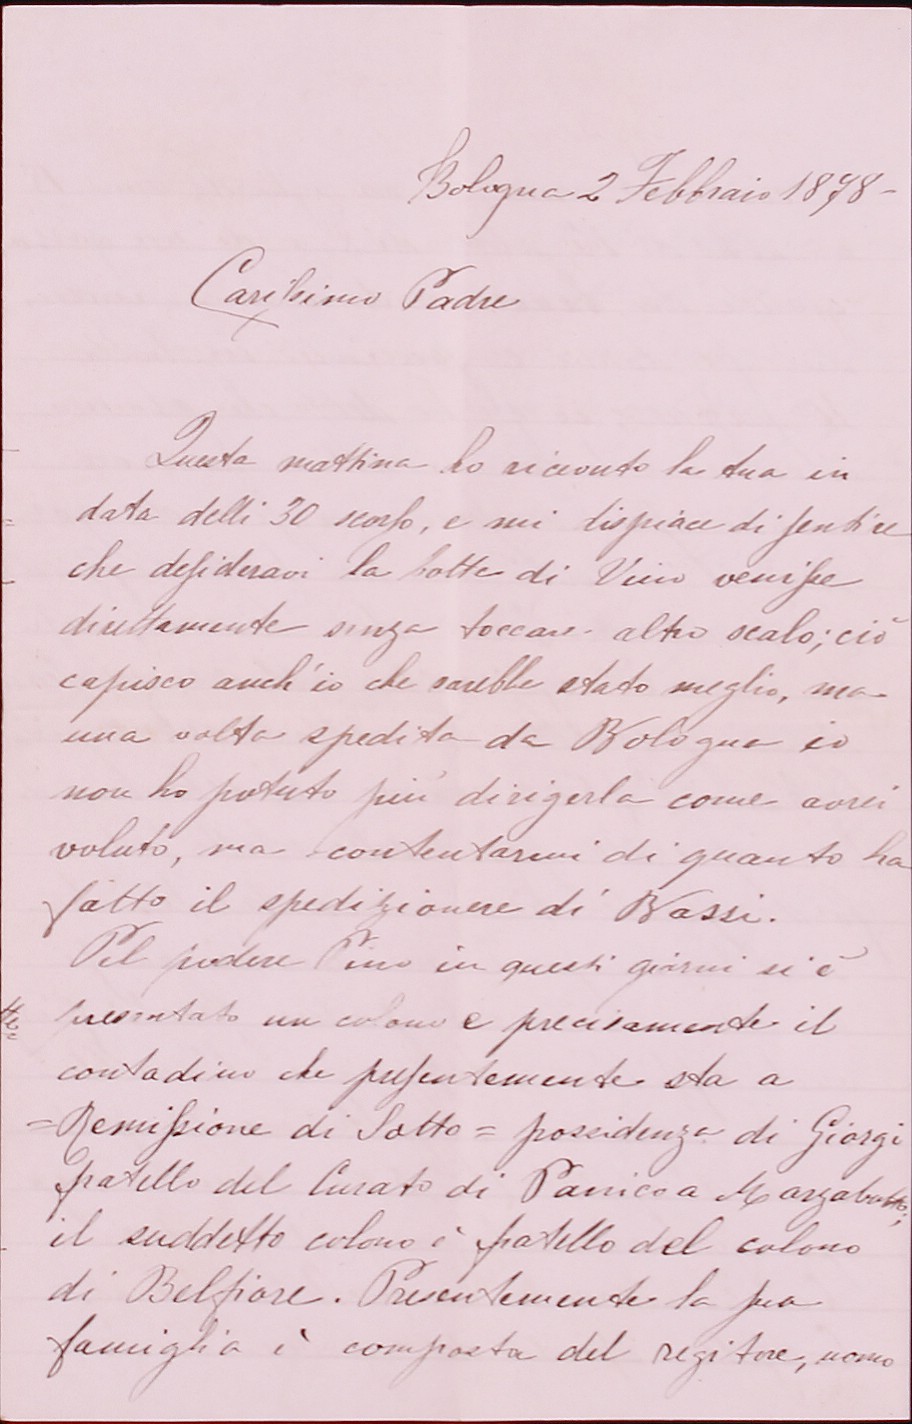 Bologna 2 Febbraio 1878-
Carissimo Padre
Questa mattina ho ricevuto la tua in
data delli 30 scorso, e mi dispiace di sentire
che desideravi la botte di Vino venisse
direttamente senza toccare altro scalo; ciò
capisco anch'io che sarebbe stato meglio, ma
una volta spedita da Bologna io
non ho potuto più dirigerla come avrei
voluto, ma contentarmi di quanto ha
fatto il spedizionere di Bassi.
Pel podere Pino in questi giorni si è
presentato un colono e precisamente il
contadino che presentemente sta a
=Remissione di Sotto= possidenza di Giorgi
fratello del Curato di Panico a Marzabotto;
il suddetto colono è fratello del colono
di Belfiore. Presentemente la sua
famiglia è composta del regitore, uomo